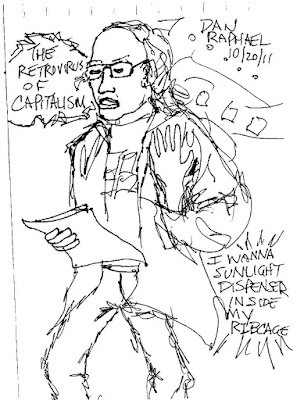 THE
RETROVIRUS
OF
CAPITALISM
DAN
RAPHAEL
10/20/11
I WANNA
SUNLIGHT
DISPENSER
INSIDE
MY
RIBCAGE